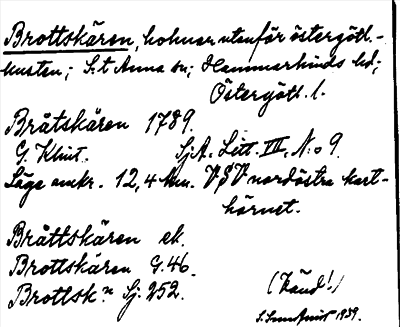 Brottskären, holmar utanför östergötl.-
kusten; S:t Anna sn; Hammarkinds hd;
Östergötl. l.
Bråtskären 1789.
G. Klint. SjA. Litt. III, N:o 9.
Läge omkr. 12,4 Mm. VSV nordöstra kart-
hörnet.
Bråttskären ek.
Brottskären G.46.
Brottsk:n Sj. 252.
(Känd!)
1939.